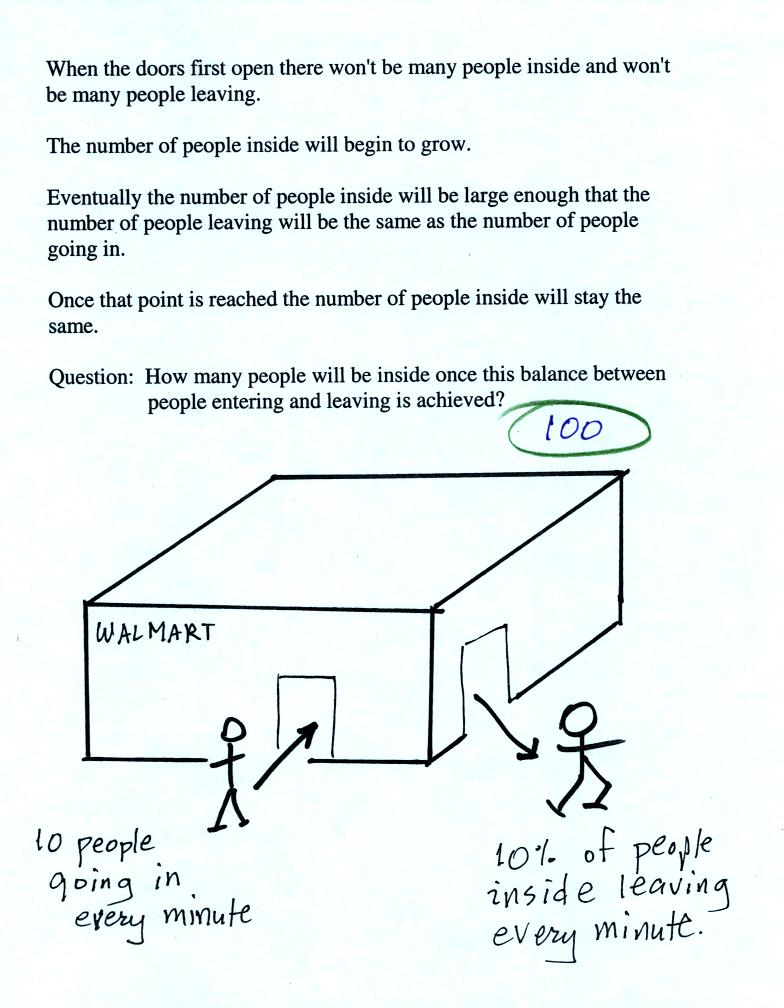 When the doors first open there won't be many people inside and won't
be many people leaving.
The number of people inside will begin to grow.
Eventually the number of people inside will be large enough that the
number of people leaving will be the same as the number of people
going in.
Once that point is reached the number of people inside will stay the
same.
Question: How many people will be inside once this balance between
people entering and leaving is achieved?
100
WALMART
10 people
going in
every minute
10% of people
inside leaving
every minute.